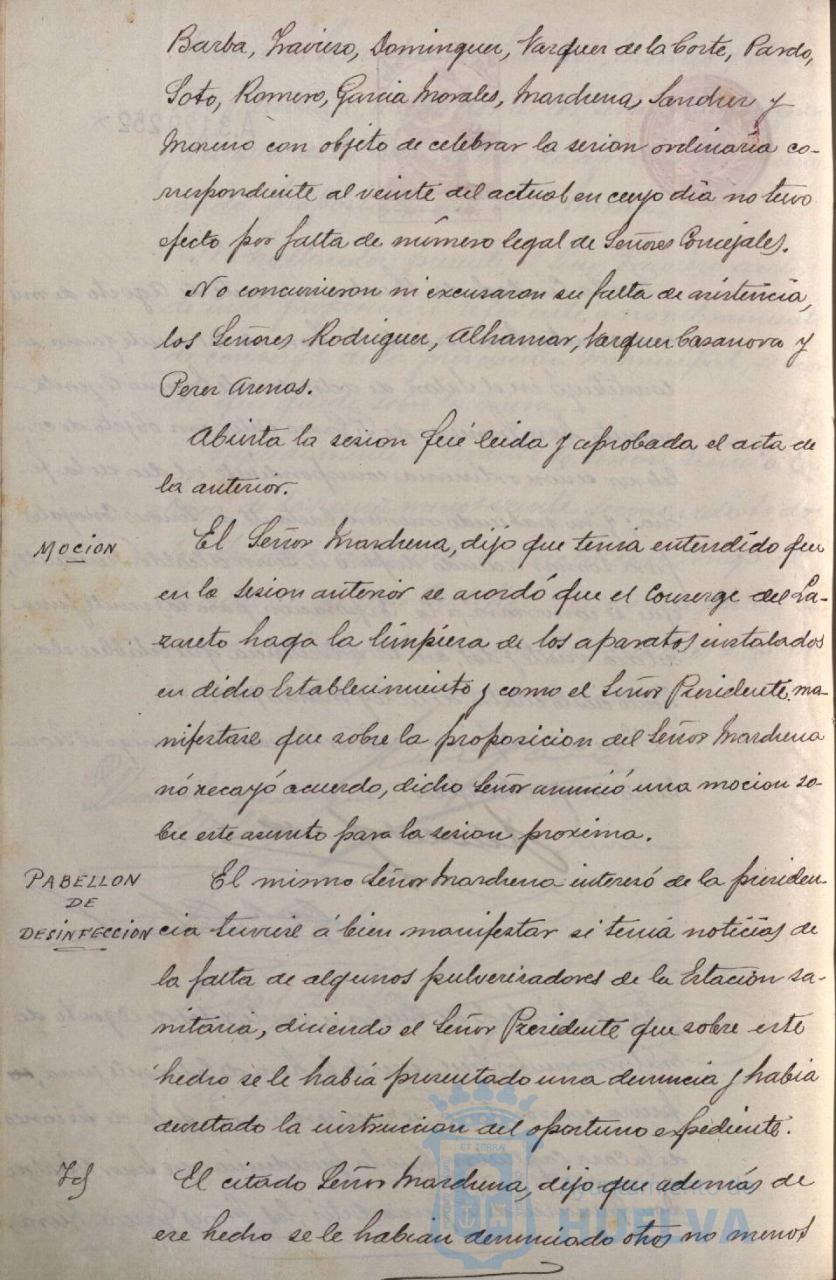 Barba, Traviero, Dominguez, Vazquez de la Corte, Pardo,
Soto, Romero, Garcia Morales, Marchena, Sanchez y
Moreno con objeto de celebrar la sesion ordinaria co-
rrespondiente al veinte del actual en cuyo dia no tuvo
efecto por falta de número legal de Señores Concejales.
No concurrieron ni excusaron su falta de asistencia,
los Señores Rodriguez, Alhamar, Vazquez Casanova y
Perez Arenas.
Abierta la sesion fué leida y aprobada el acta de
la anterior.
MOCION
El Señor Marchena, dijo que tenia entendido que
en la sesion anterior se acordó que el Conserge del La-
zareto haga la limpieza de los aparatos instalados
en dicho Establecimiento y como el Señor Presidente ma-
nifestase que sobre la proposicion del Señor Marchena
nó recayó acuerdo, dicho Señor anunció una mocion so-
bre este asunto para la sesion proxima.
PABELLON
DE
DESINFECCION
El mismo Señor Marchena interesó de la presiden-
cia tuviese á bien manifestar si tenia noticias de
la falta de algunos pulverisadores de la Estación sa-
nitaria, diciendo el Señor Presidente que sobre este
hecho se le habia presentado una denuncia y habia
decretado la instruccion del oportuno expediente.
Id
El citado Señor Marchena, dijo que además de
ese hecho se le habian denunciado otros no menos
Ayuntamiento de
HUELVA